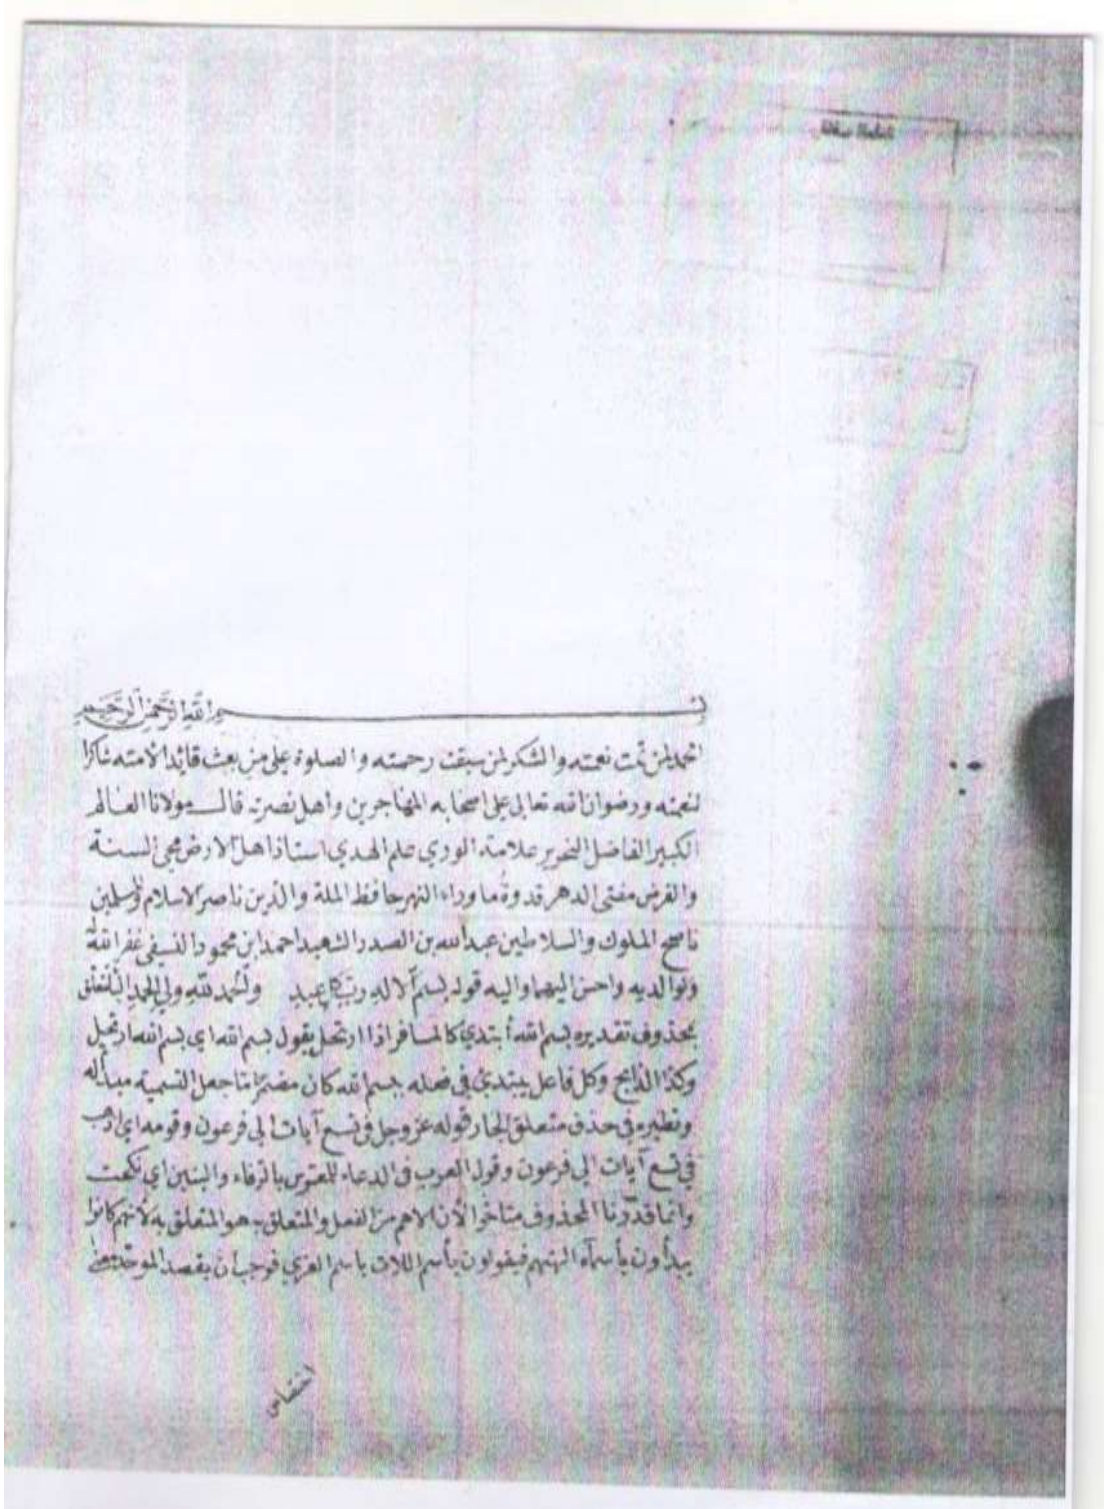 بسم الله الرحمن الرحيم
الحمد لمن تمت نعمته والشكر لمن سبقت رحمته والصلوة على من بعث قائدا لامته شاكرا
لنعمته ورضوان الله تعالى على اصحابه المهاجرين واهل نصرته قال مولانا العالم
الكبير الفاضل النحرير علامة الورى علم الهدي استاذ اهل الارض محي السنة
والفرض مفتى الدهر قدوة ما وراء النهر حافظ الملة والدين ناصر الاسلام والمسلمين
ناصح الملوك والسلاطين عبد الله بن الصدر الشهيد احمد ابن محمود النسفى غفر الله له
ولوالديه واحسن اليهما واليه قوله بسم الاله رب كل عبد والحمد لله ولي الحمد الباء تتعلق
بمحذوف تقديره بسم الله أبتدئ كالمسافر اذا ارتحل يقول بسم الله اي بسم الله ارتحل
وكذا الذابح وكل فاعل يبتدئ في فعله ببسم الله كان مضمرا ما جعل التسمية مبدأ له
ونظيره في حذف متعلق الجار قوله عز وجل في تسع آيات الى فرعون وقومه اي اذهب
في تسع آيات الى فرعون وقول العرب فى الدعاء للمعرس بالرفاء والبنين اي نكحت
وانما قدرنا المحذوف متاخرا لأن الاهم من الفعل والمتعلق به هو المتعلق به لأنهم كانوا
يبدأون بأسماء الهتهم فيقولون باسم اللات باسم العزي فوجب أن يقصد الموحد معنى
اختصاص